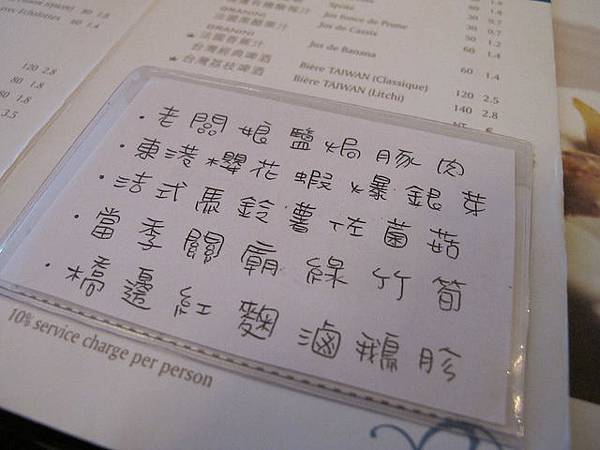 Spoite
ORANGINI
Jus Ponce de Prune
Jus de Cassis
法國香蕉汁
Jus de Banana
台灣經典啤酒
Bière TAIWAN (Classique)
★台灣荔枝啤酒
Bière TAIWAN (Litchi)
60 1.4
30 0.7
30 0.7
30 1.2
60 1.4
60 1.4
120 2.5
140 2.8
NT €
avec Echalottes 60 1.4
120 2.8
80 1.8
80 1.8
3.5
·老闆娘鹽焗豚肉
·東港櫻花蝦爆銀芽
·法式馬鈴薯佐菌菇
·當季關廟綠竹筍
·橋邊紅麴滷鵝胗
10% service charge per person